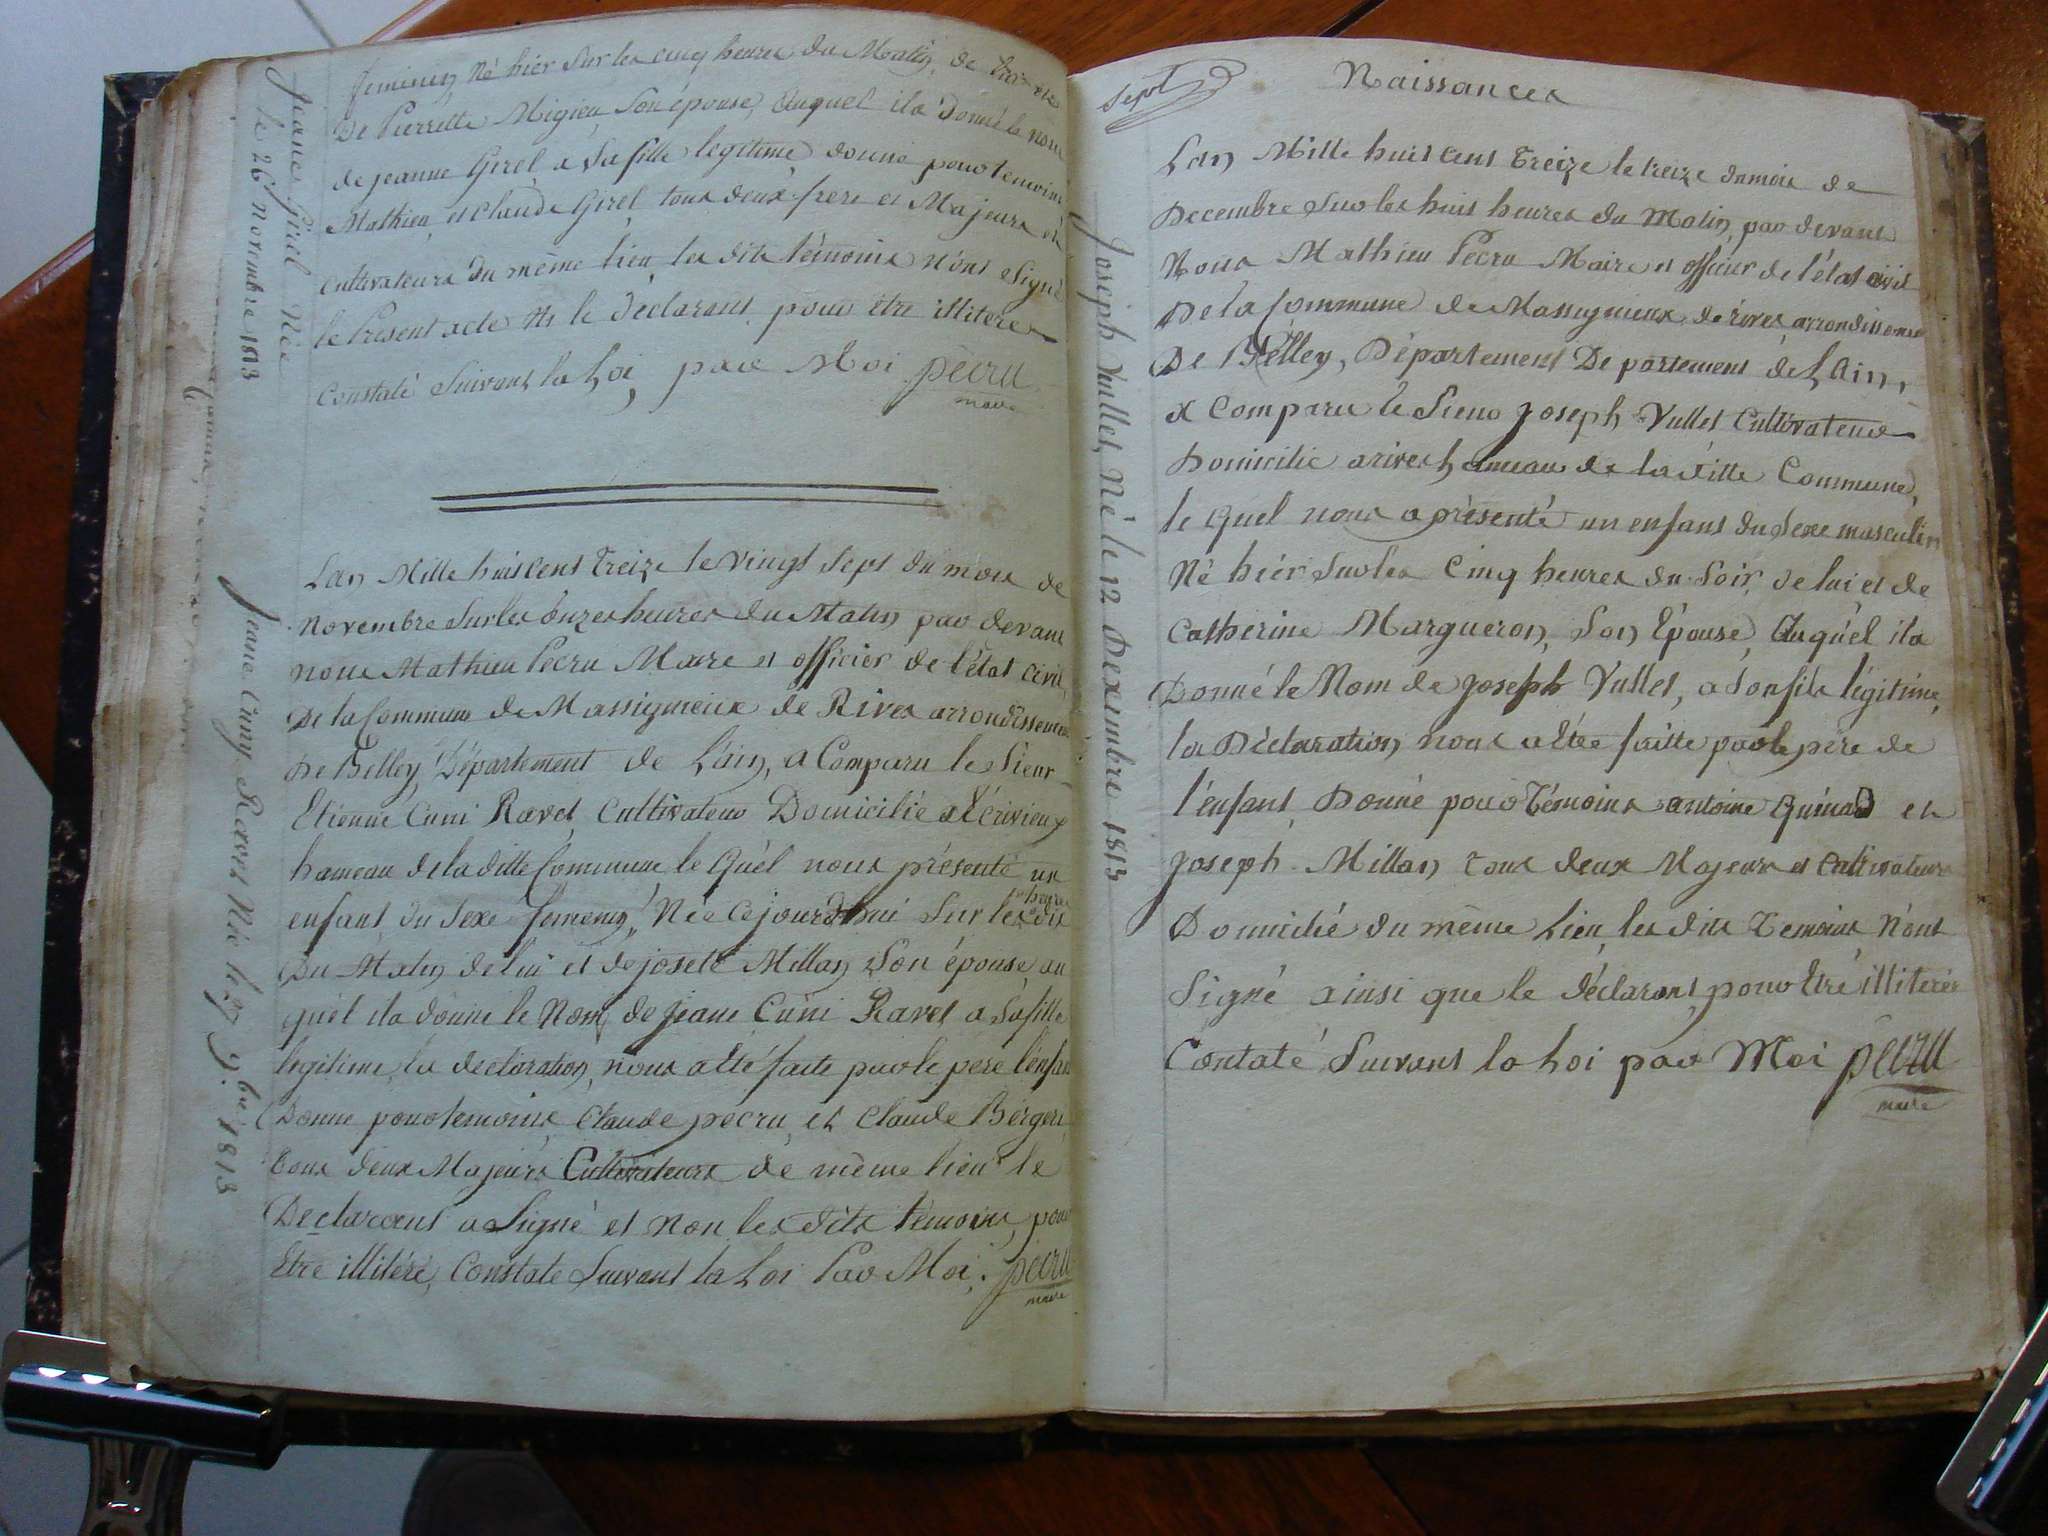 Jeane Girel Née
le 26 novembre 1813
feminin Né hier Sur les cinq heures du Matin, de
De Pierrette Migieu Son épouse, auquel ila donné le nom
de jeanne Girel, a Sa fille legitime donne pour temoins
Mathieu et Claude Girel, tous deux frere et Majeurs et
Cultivateurs du même lieu, les dits témoins n'ont Signé
le Présent acte Ni le déclarant pour être illitere
Constaté Suivant la Loi, par Moi pecru
maire
Jeane Cuny Ravet Née le 27 9.bre 1813
Lan Mille huit Cent Treize le Vingt Sept du mois de
Novembre Sur les Onzes heures du Matin par devant
nous Mathieu Pecru Maire et officier de l'état Civil
De la Commune de Massignieux de Rives arrondissement
De Belley, Département de Lain, a Comparu le Sieur
Etienne Cuni Ravet Cultivateur Domicilié a Ecrivieux
hameau de la ditte Commune le Quel nous présenté un
enfant du Sexe femenin, Née Cejourdhui Sur les six heures
Du Matin de lui et de josete Millan Son épouse, au
quel ila donne le Nom de jeane Cuni Ravet a Sa fille
legitime, la declaration, nous a été faite par le pere l'enfant
Donne pour temoins Claude pecru et Claude Berger
tous deux Majeurs Cultivateurs de même lieu le
Declarant a Signé et Non les dits témoins, pour
Etre illitéré, Constate Suivant la Loi Par Moi, pecru
maire
Sept
Naissances
Joseph Vullet, Né le 12 Dexembre 1813
Lan Mille huit Cent Treize le treize du mois de
Decembre Sur les huit heures du Matin, par devant
Nous Mathieu Pecru Maire et officier de l'état civil
De la Commune de Massignieux de rives arrondissement
De Belley, Département De partement de Lain,
a Comparu le Sieur Joseph Vullet Cultivateur
Domicilié a rives hameau de la ditte Commune,
le Quel nous a présenté un enfant du Sexe masculin
Né hier Sur les Cinq heures du Soir, de lui et de
Catherine Margueron, Son Epouse, Auquel ila
Donné le Nom de Joseph Vullet, a Son fils légitime,
la Déclaration nous a étée faitte par le père de
l'enfant, Donné pour Témoins antoine Guinad et
Joseph Millan tous deux Majeurs et Cultivateurs
Domicilié du même Lieu, les dits Temoins N'ont
Signé ainsi que le déclarant, pour Etre illiterés
Contaté Suivant la Loi par Moi pecru
maire